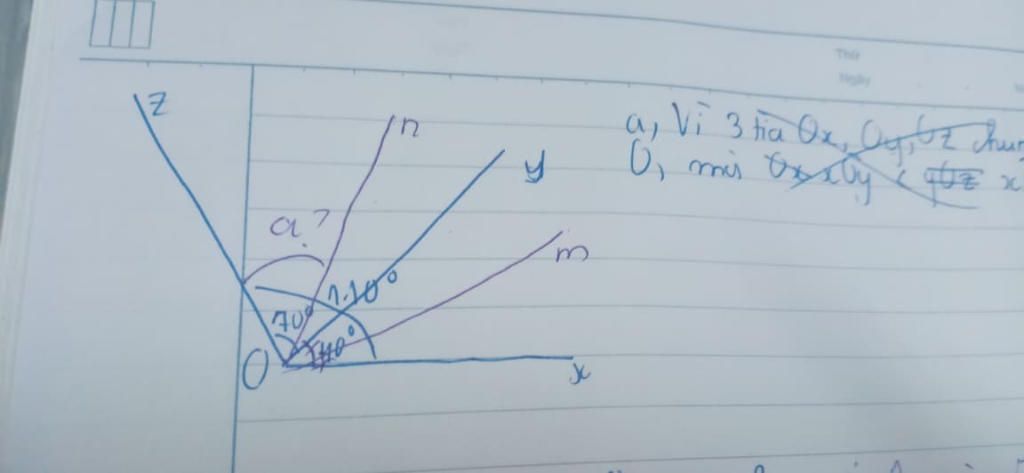 Thứ
Ngày
z
n
a, Vì 3 tia Ox, Oy, Oz chun
y
O, mà Ox xOy < x
a?
m
1.10°
70°
40°
O
x